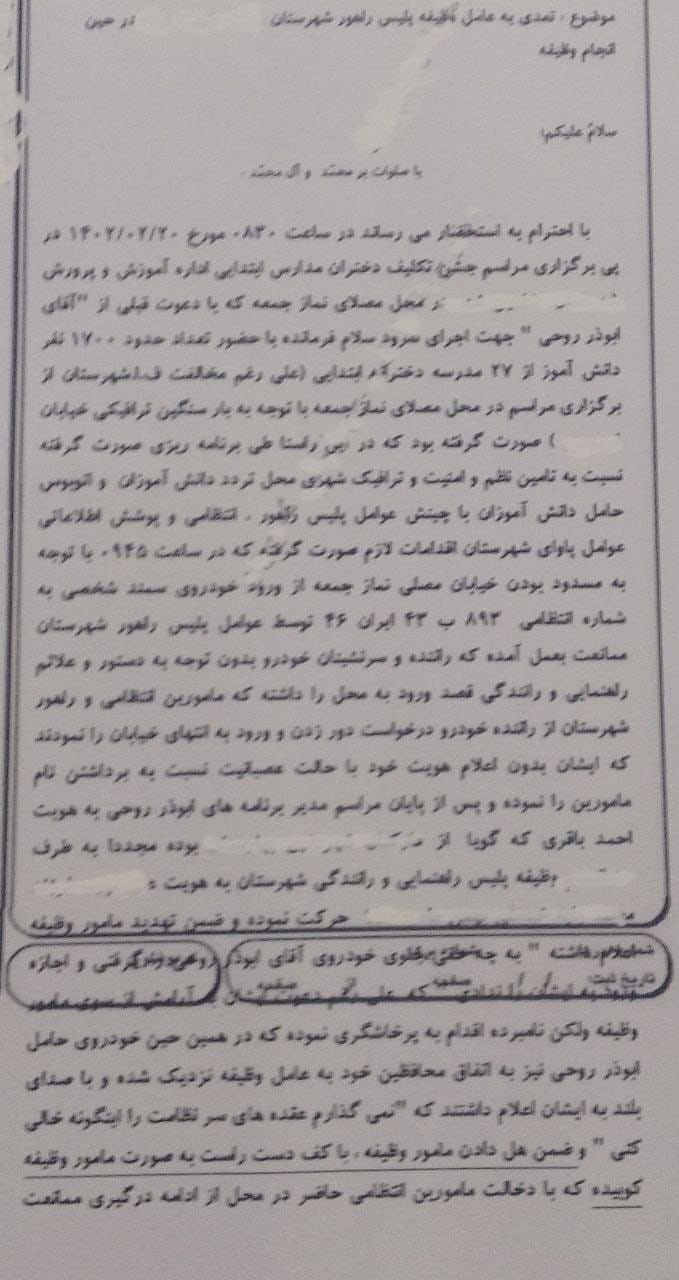 موضوع : تعدی به عامل وظیفه پلیس راهور شهرستان در حین
انجام وظیفه
سلامٌ علیکم؛
با صلوات بر محمّد و آل محمّد .
با احترام به استحضار می رساند در ساعت ۰۸۳۰ مورخ ۱۴۰۲/۰۲/۲۰ در
پی برگزاری مراسم جشن تکلیف دختران مدارس ابتدایی اداره آموزش و پرورش
در محل مصلای نماز جمعه که با دعوت قبلی از "آقای
ابوذر روحی " جهت اجرای سرود سلام فرمانده با حضور تعداد حدود ۱۷۰۰ نفر
دانش آموز از ۲۷ مدرسه دخترانه ابتدایی (علی رغم مخالفت ف.ا.شهرستان از
برگزاری مراسم در محل مصلای نماز جمعه با توجه به بار سنگین ترافیکی خیابان
) صورت گرفته بود که در این راستا طی برنامه ریزی صورت گرفته
نسبت به تامین نظم و امنیت و ترافیک شهری محل تردد دانش آموزان و اتوبوس
حامل دانش آموزان با چینش عوامل پلیس راهور ، انتظامی و پوشش اطلاعاتی
عوامل پاوای شهرستان اقدامات لازم صورت گرفته که در ساعت ۰۹۴۵ با توجه
به مسدود بودن خیابان مصلی نماز جمعه از ورود خودروی سمند شخصی به
شماره انتظامی ۸۹۳ ب ۴۳ ایران ۴۶ توسط عوامل پلیس راهور شهرستان
ممانعت بعمل آمده که راننده و سرنشینان خودرو بدون توجه به دستور و علائم
راهنمایی و رانندگی قصد ورود به محل را داشته که مامورین انتظامی و راهور
شهرستان از راننده خودرو درخواست دور زدن و ورود به انتهای خیابان را نمودند
که ایشان بدون اعلام هویت خود با حالت عصبانیت نسبت به برداشتن نام
مامورین را نموده و پس از پایان مراسم مدیر برنامه های ابوذر روحی به هویت
احمد باقری که گویا از بوده مجددا به طرف
وظیفه پلیس راهنمایی و رانندگی شهرستان به هویت
حرکت نموده و ضمن تهدید مامور وظیفه
" به چه حقی جلوی خودروی آقای ابوذر روحی گرفتی و اجازه
ورود به ایشان را ندادی که علی رغم دعوت ایشان به آرامش از سوی مامور
وظیفه ولکن نامبرده اقدام به پرخاشگری نموده که در همین حین خودروی حامل
ابوذر روحی نیز به اتفاق محافظین خود به عامل وظیفه نزدیک شده و با صدای
بلند به ایشان اعلام داشتند که "نمی گذارم عقده های سر نظامت را اینگونه خالی
کنی " و ضمن هل دادن مامور وظیفه ، با کف دست راست به صورت مامور وظیفه
کوبیده که با دخالت مامورین انتظامی حاضر در محل از ادامه درگیری ممانعت